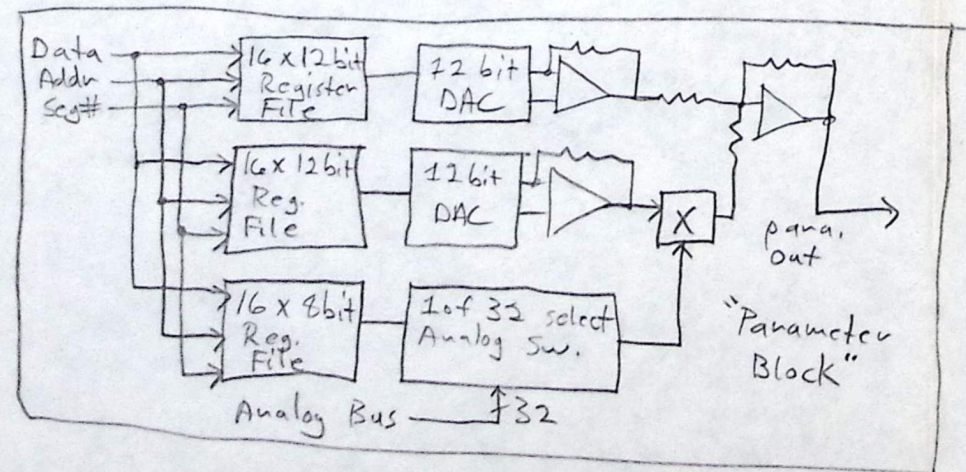 Data
Addr
Seg#
16 x 12bit
Register
File
12 bit
DAC
16 x 12bit
Reg.
File
12bit
DAC
X
para.
out
16 x 8bit
Reg.
File
1 of 32 select
Analog Sw.
"Parameter
Block"
Analog Bus
32